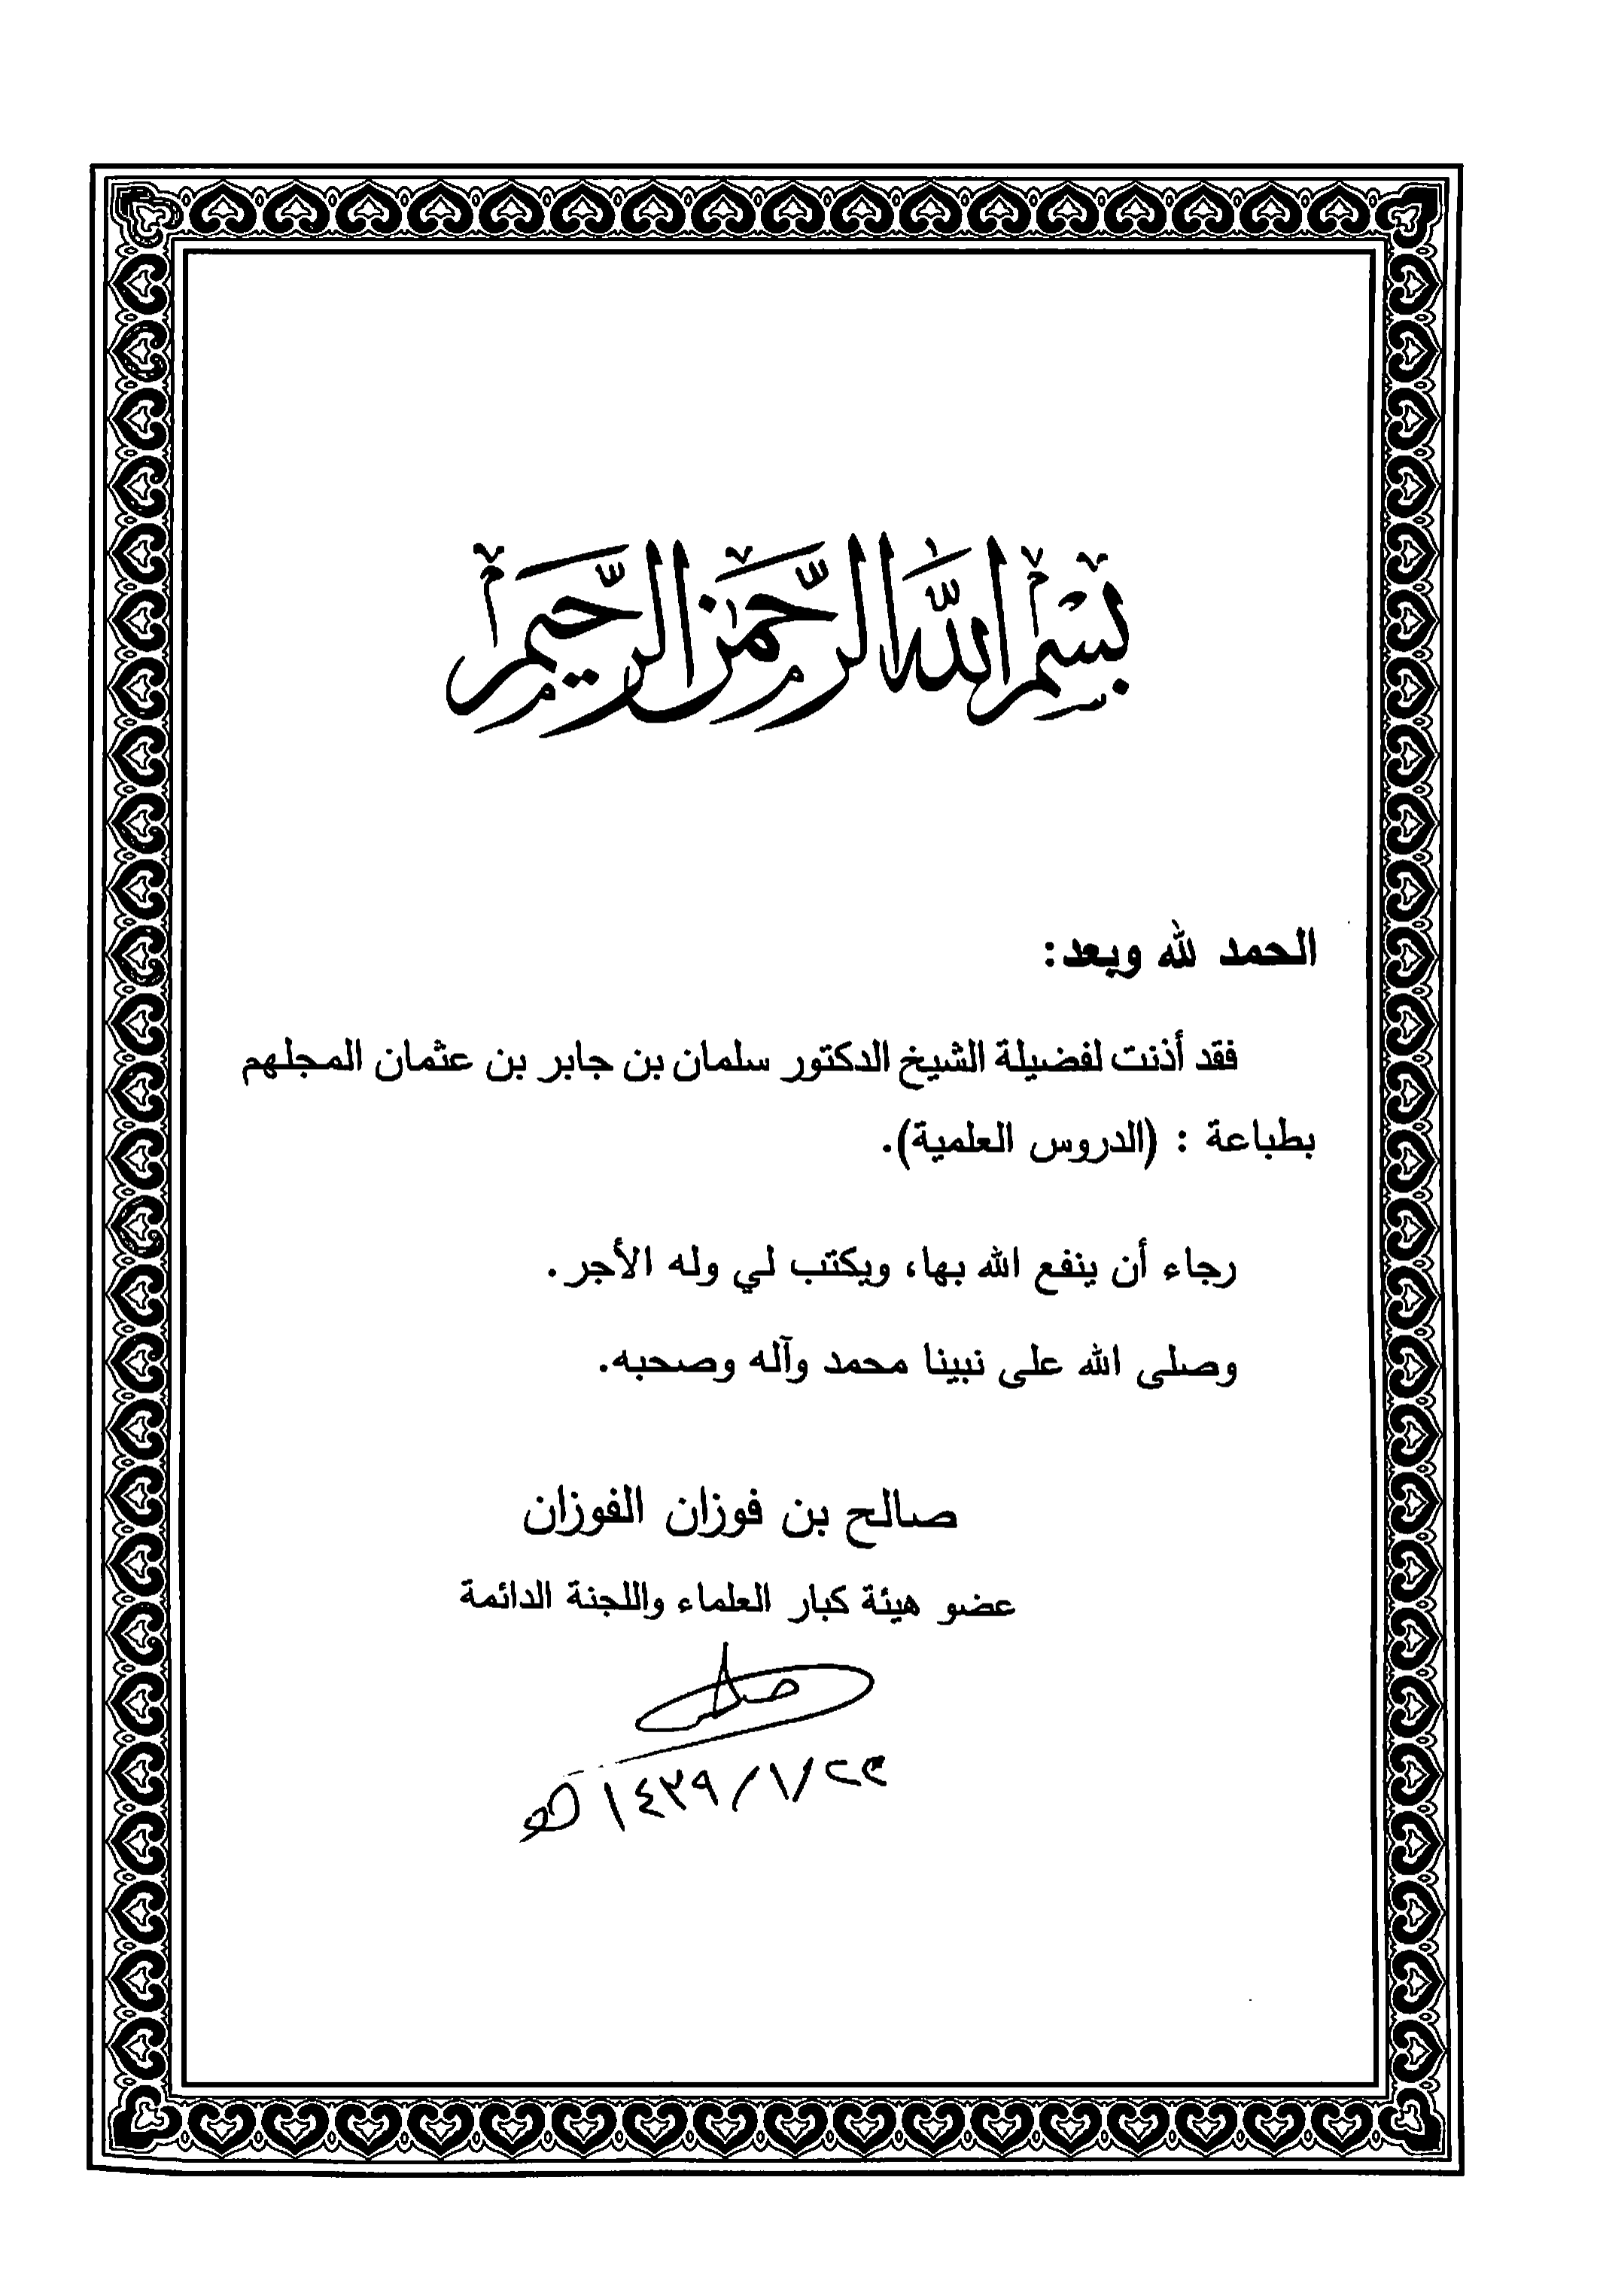 بسم الله الرحمن الرحيم
الحمد لله وبعد:
فقد أذنت لفضيلة الشيخ الدكتور سلمان بن جابر بن عثمان المجلهم
بطباعة : (الدروس العلمية).
رجاء أن ينفع الله بها، ويكتب لي وله الأجر.
وصلى الله على نبينا محمد وآله وصحبه.
صالح بن فوزان الفوزان
عضو هيئة كبار العلماء واللجنة الدائمة
١٤٣٩هـ